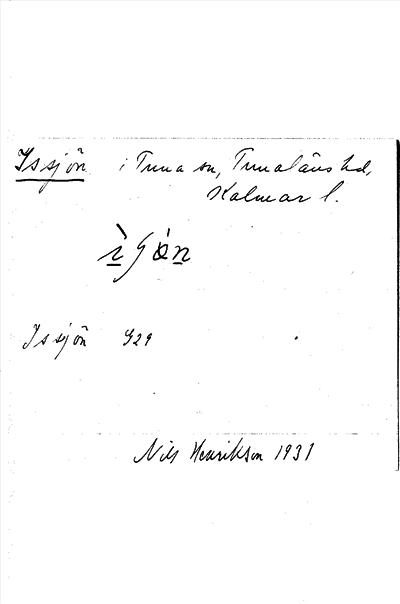 Issjön i Tuna sn, Tunaläns hd,
Kalmar l.
Issjön G29
Nils Henrikson 1931